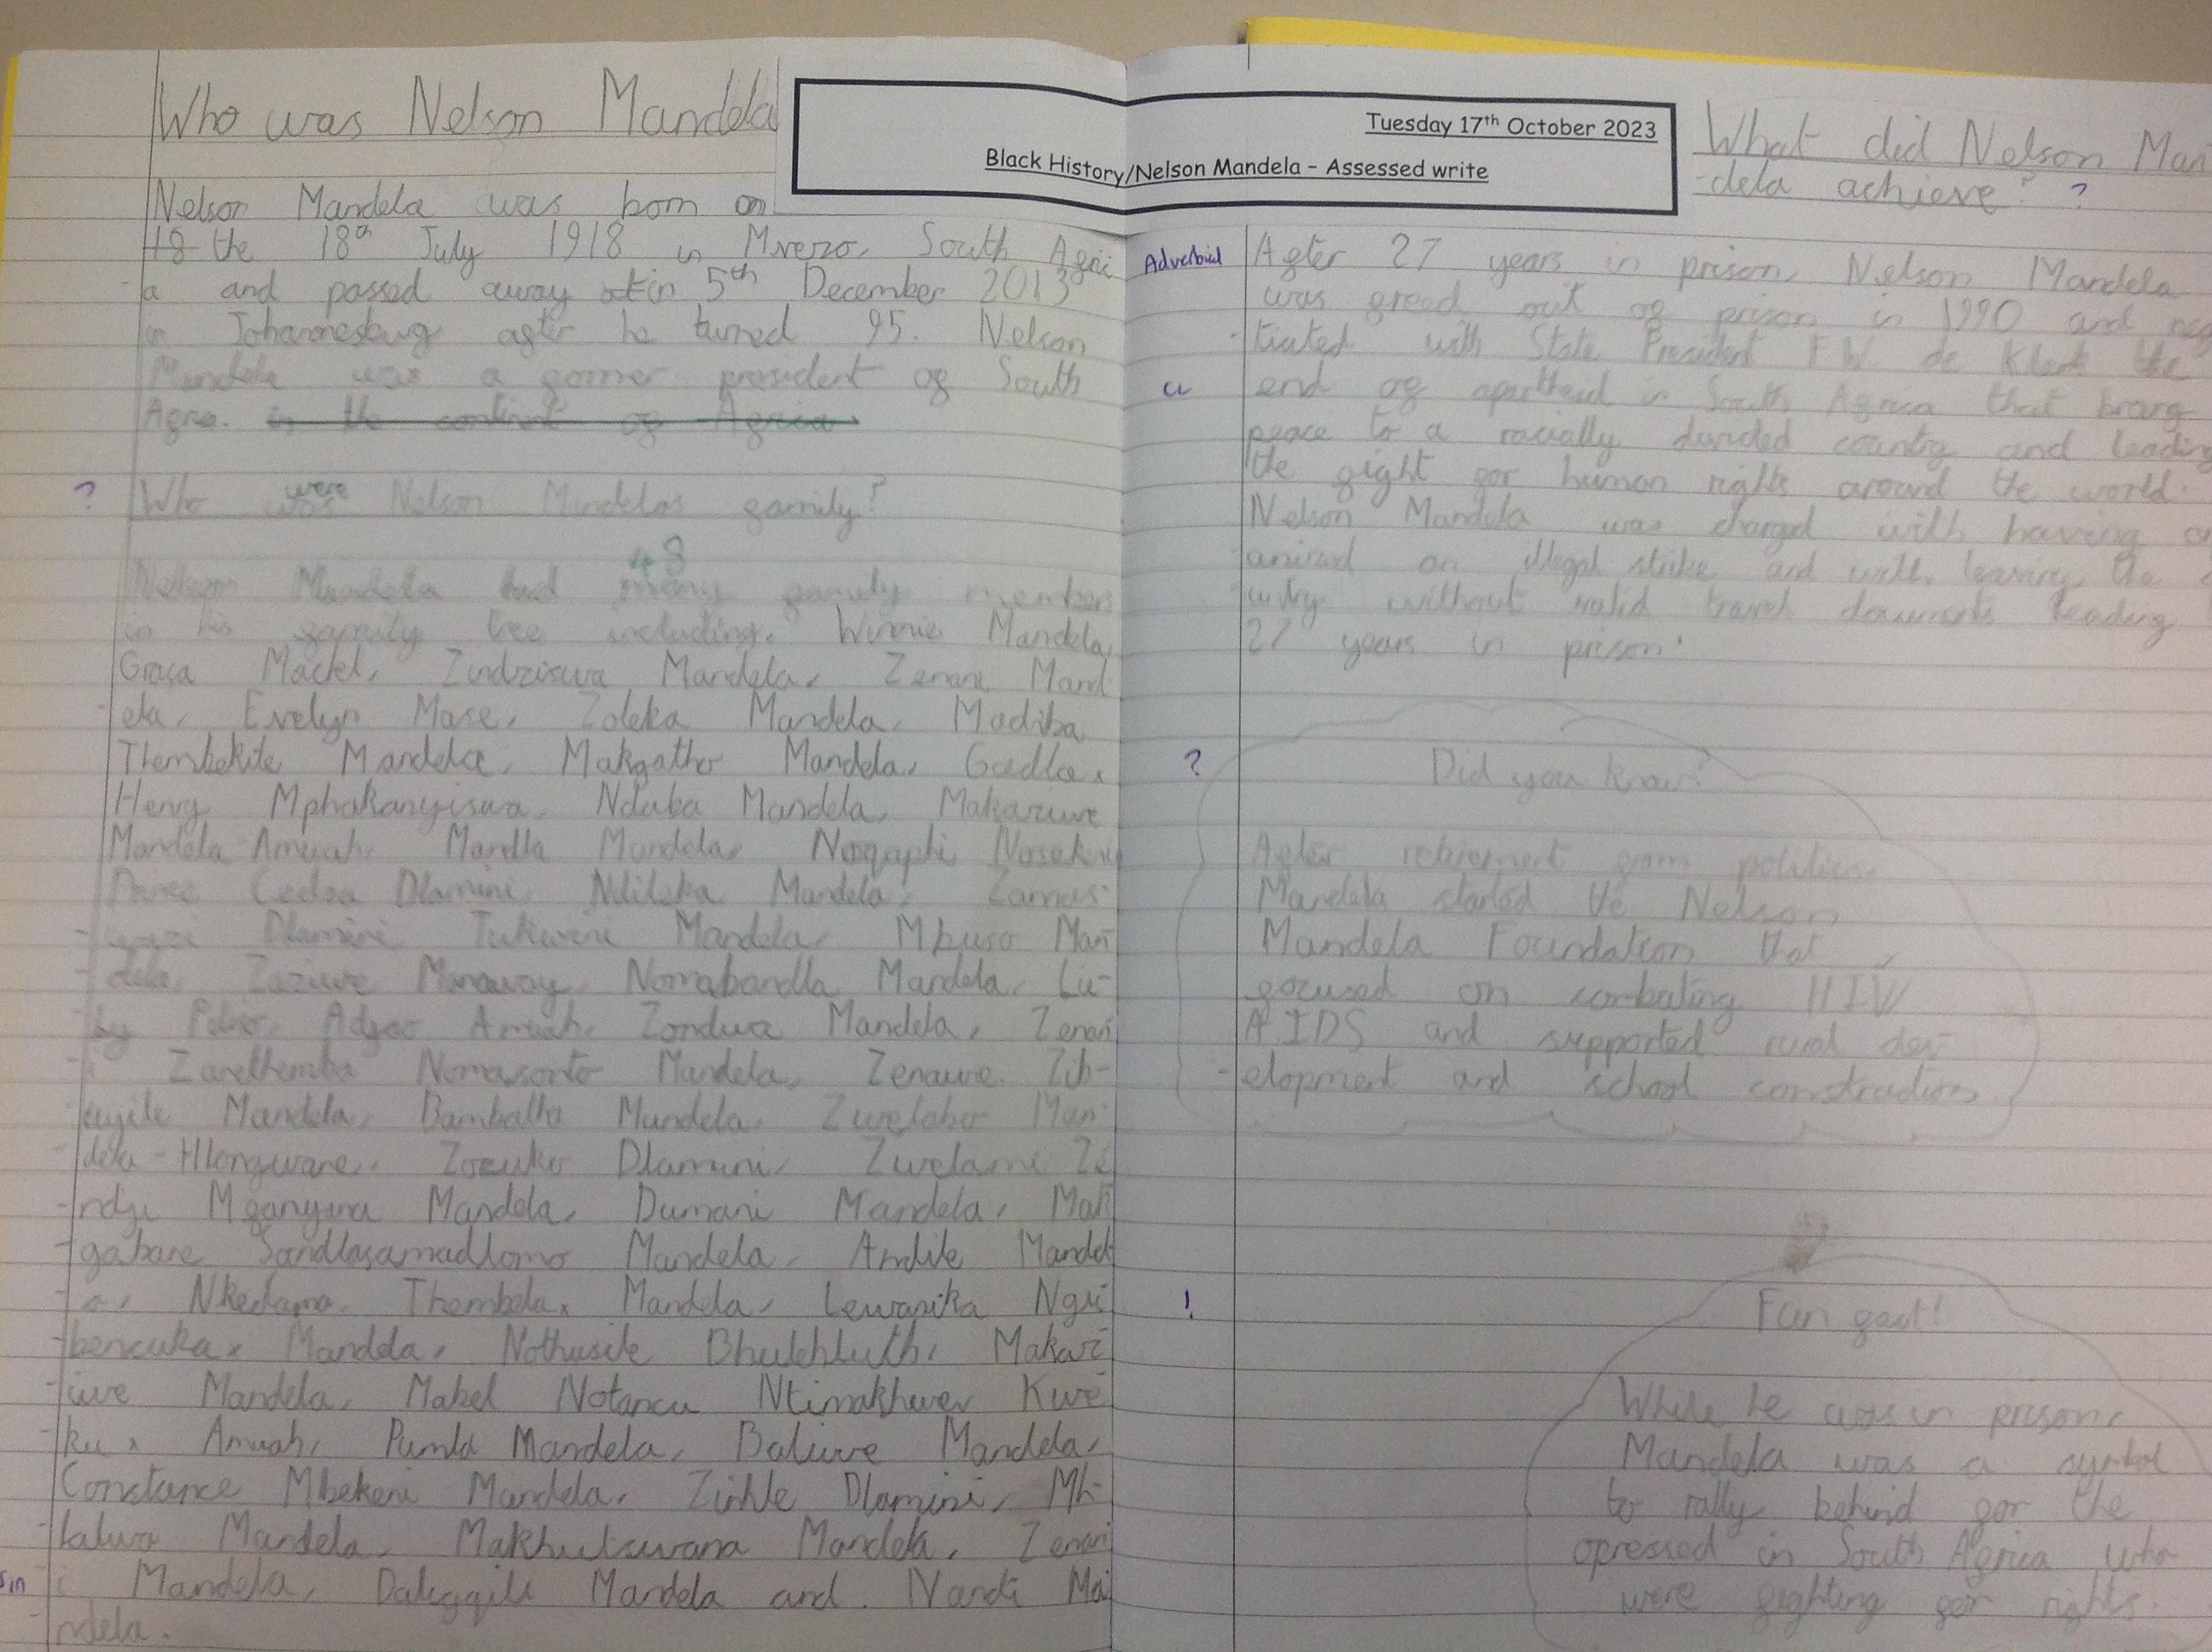 Who was Nelson Mandela
Nelson Mandela was born on
18 the 18th July 1918 in Mvezo, South Afric
-a and passed away in 5th December 2013
in Johannesburg after he turned 95. Nelson
Mandela was a former president of South
Africa. in the continent of Africa
? Who were Nelson Mandelas family?
48
Nelson Mandela had many family members
in his family tree including. Winnie Mandela,
Graca Mackel, Zindziswa Mandela, Zenani Mand
-ela, Evelyn Mase, Zoleka Mandela, Madiba
Thembekile Mandela, Makgatho Mandela, Gadla,
Henry Mphakanyiswa, Ndaba Mandela, Makaziwe
Mandela-Amuah, Mandla Mandela, Nosekeni
Prince Cedza Dlamini, Ndileka Mandela,
Dlamini, Tukwini Mandela, Mbuso Man
-dela, Zaziwe Manaway, Nomabandla Mandela, Lu-
by Adjoa Amuah, Zondwa Mandela, Zenani
Zanethemba Nomasonto Mandela, Zenawe Zib-
uyile Mandela, Bambatha Mandela, Zwelabo Man-
dela-Hlongwane, Zozuko Dlamini, Zwelami Zi
-ndzi Mandela, Dumani Mandela, Mak
-gabane Mandela, Andile Mandel
-a, Nkedama, Thembela, Mandela, Lewanika Ngu
-bencuka, Mandela, Nothusile Bhulehluth, Makaz
-iwe Mandela, Mabel Notancu Ntimakhwer Kwe
-ku, Amuah, Pumla Mandela, Baliwe Mandela,
Constance Mbekeni Mandela, Zinhle Dlamini, Mh-
-laluo Mandela, Makhutswana Mandela, Zenan
i Mandela, Mandela and Nandi Ma
-ndela.
Tuesday 17th October 2023
Black History/Nelson Mandela – Assessed write
What did Nelson Man
-dela achieve? ?
Adverbial After 27 years in prison, Nelson Mandela
was freed out of prison in 1990 and neg
-tiated with State President F.W. de Klerk the
end of apartheid in South Africa that brang
peace to a racially divided country and leading
the fight for human rights around the world.
Nelson Mandela was charged with having o
anised an illegal strike and with leaving the
untry without valid travel documents leading
27 years in prison.
? Did you know?
After retirement from politics
Mandela started the Nelson
Mandela Foundation that
focused on combating HIV/
AIDS and supported rural dev-
-elopment and school construction
! Fun fact!
While he was in prison,
Mandela was a symbol
to rally behind for the
opressed in South Africa who
were fighting for rights.